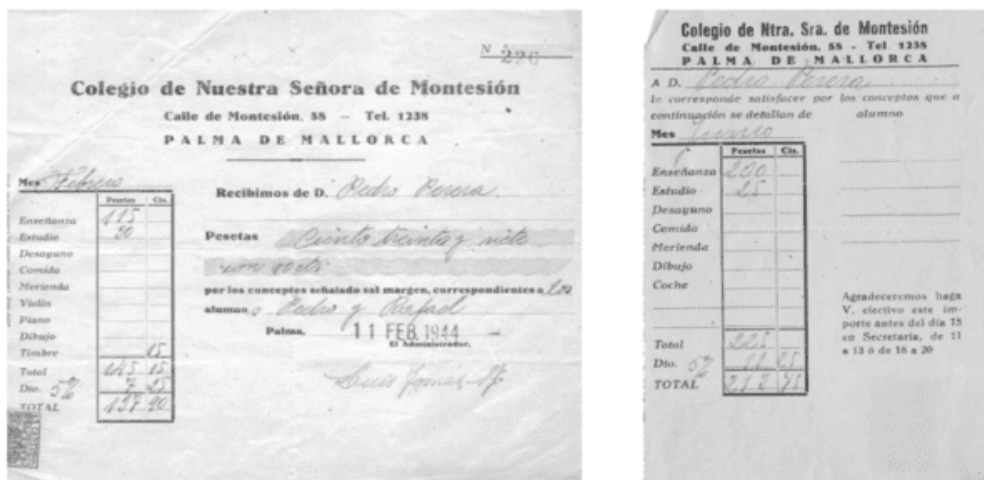 Nº 226
Colegio de Nuestra Señora de Montesión
Calle de Montesión, 88 - Tel. 1238
PALMA DE MALLORCA
Mes Febrero
Recibimos de D. Pedro Perera
Pesetas Cts.
Enseñanza 115
Estudio 30
Desayuno
Comida
Merienda
Violín
Piano
Dibujo
Timbre 15
Total 145 15
Dto. 5% 7 25
TOTAL 137 90
Pesetas Ciento treinta y siete
con 90 cts
por los conceptos señalado sal margen, correspondientes a los
alumno s Pedro y Rafael
Palma, 11 FEB. 1944
El Administrador,
Luis Tomas SJ.
Colegio de Ntra. Sra. de Montesión
Calle de Montesión, 88 - Tel 1238
PALMA DE MALLORCA
A D. Pedro Perera
le corresponde satisfacer por los conceptos que a
continuación se detallan de alumno
Mes Junio
Pesetas Cts.
Enseñanza 200
Estudio 25
Desayuno
Comida
Merienda
Dibujo
Coche
Total 225
Dto. 5% 11 25
TOTAL 213 75
Agradeceremos haga
V. efectivo este im-
porte antes del día 15
en Secretaría, de 11
a 13 ó de 18 a 20